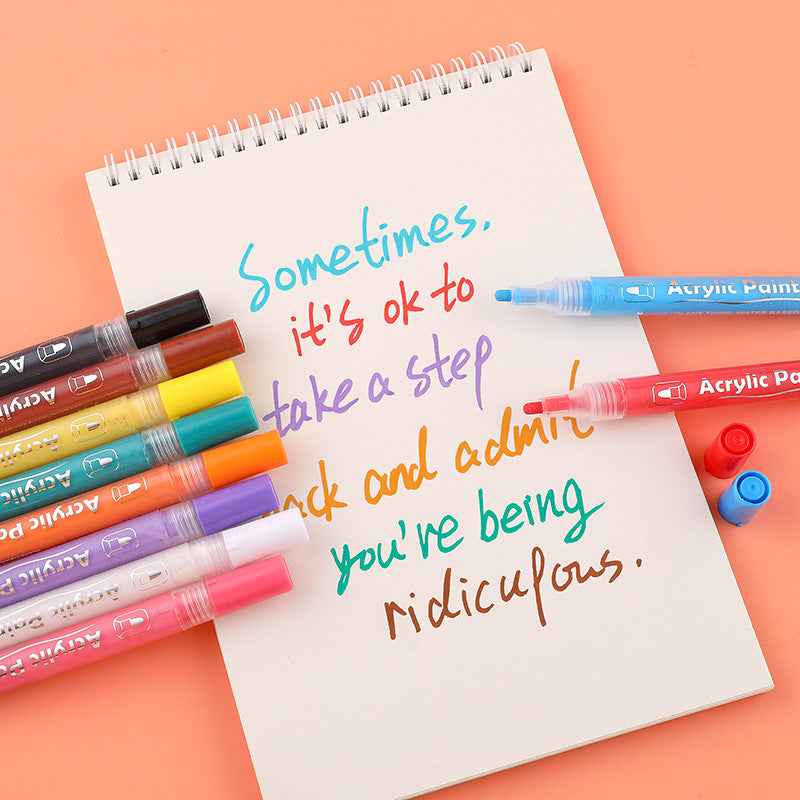 Sometimes.
it's ok to
take a step
back and admit
you're being
ridiculous.
Acrylic Paint
Acrylic Pa
Ac
Acry
Acrylic
Acrylic
Acrylic P
Acrylic Pa
Acrylic Pain
Acrylic Pa